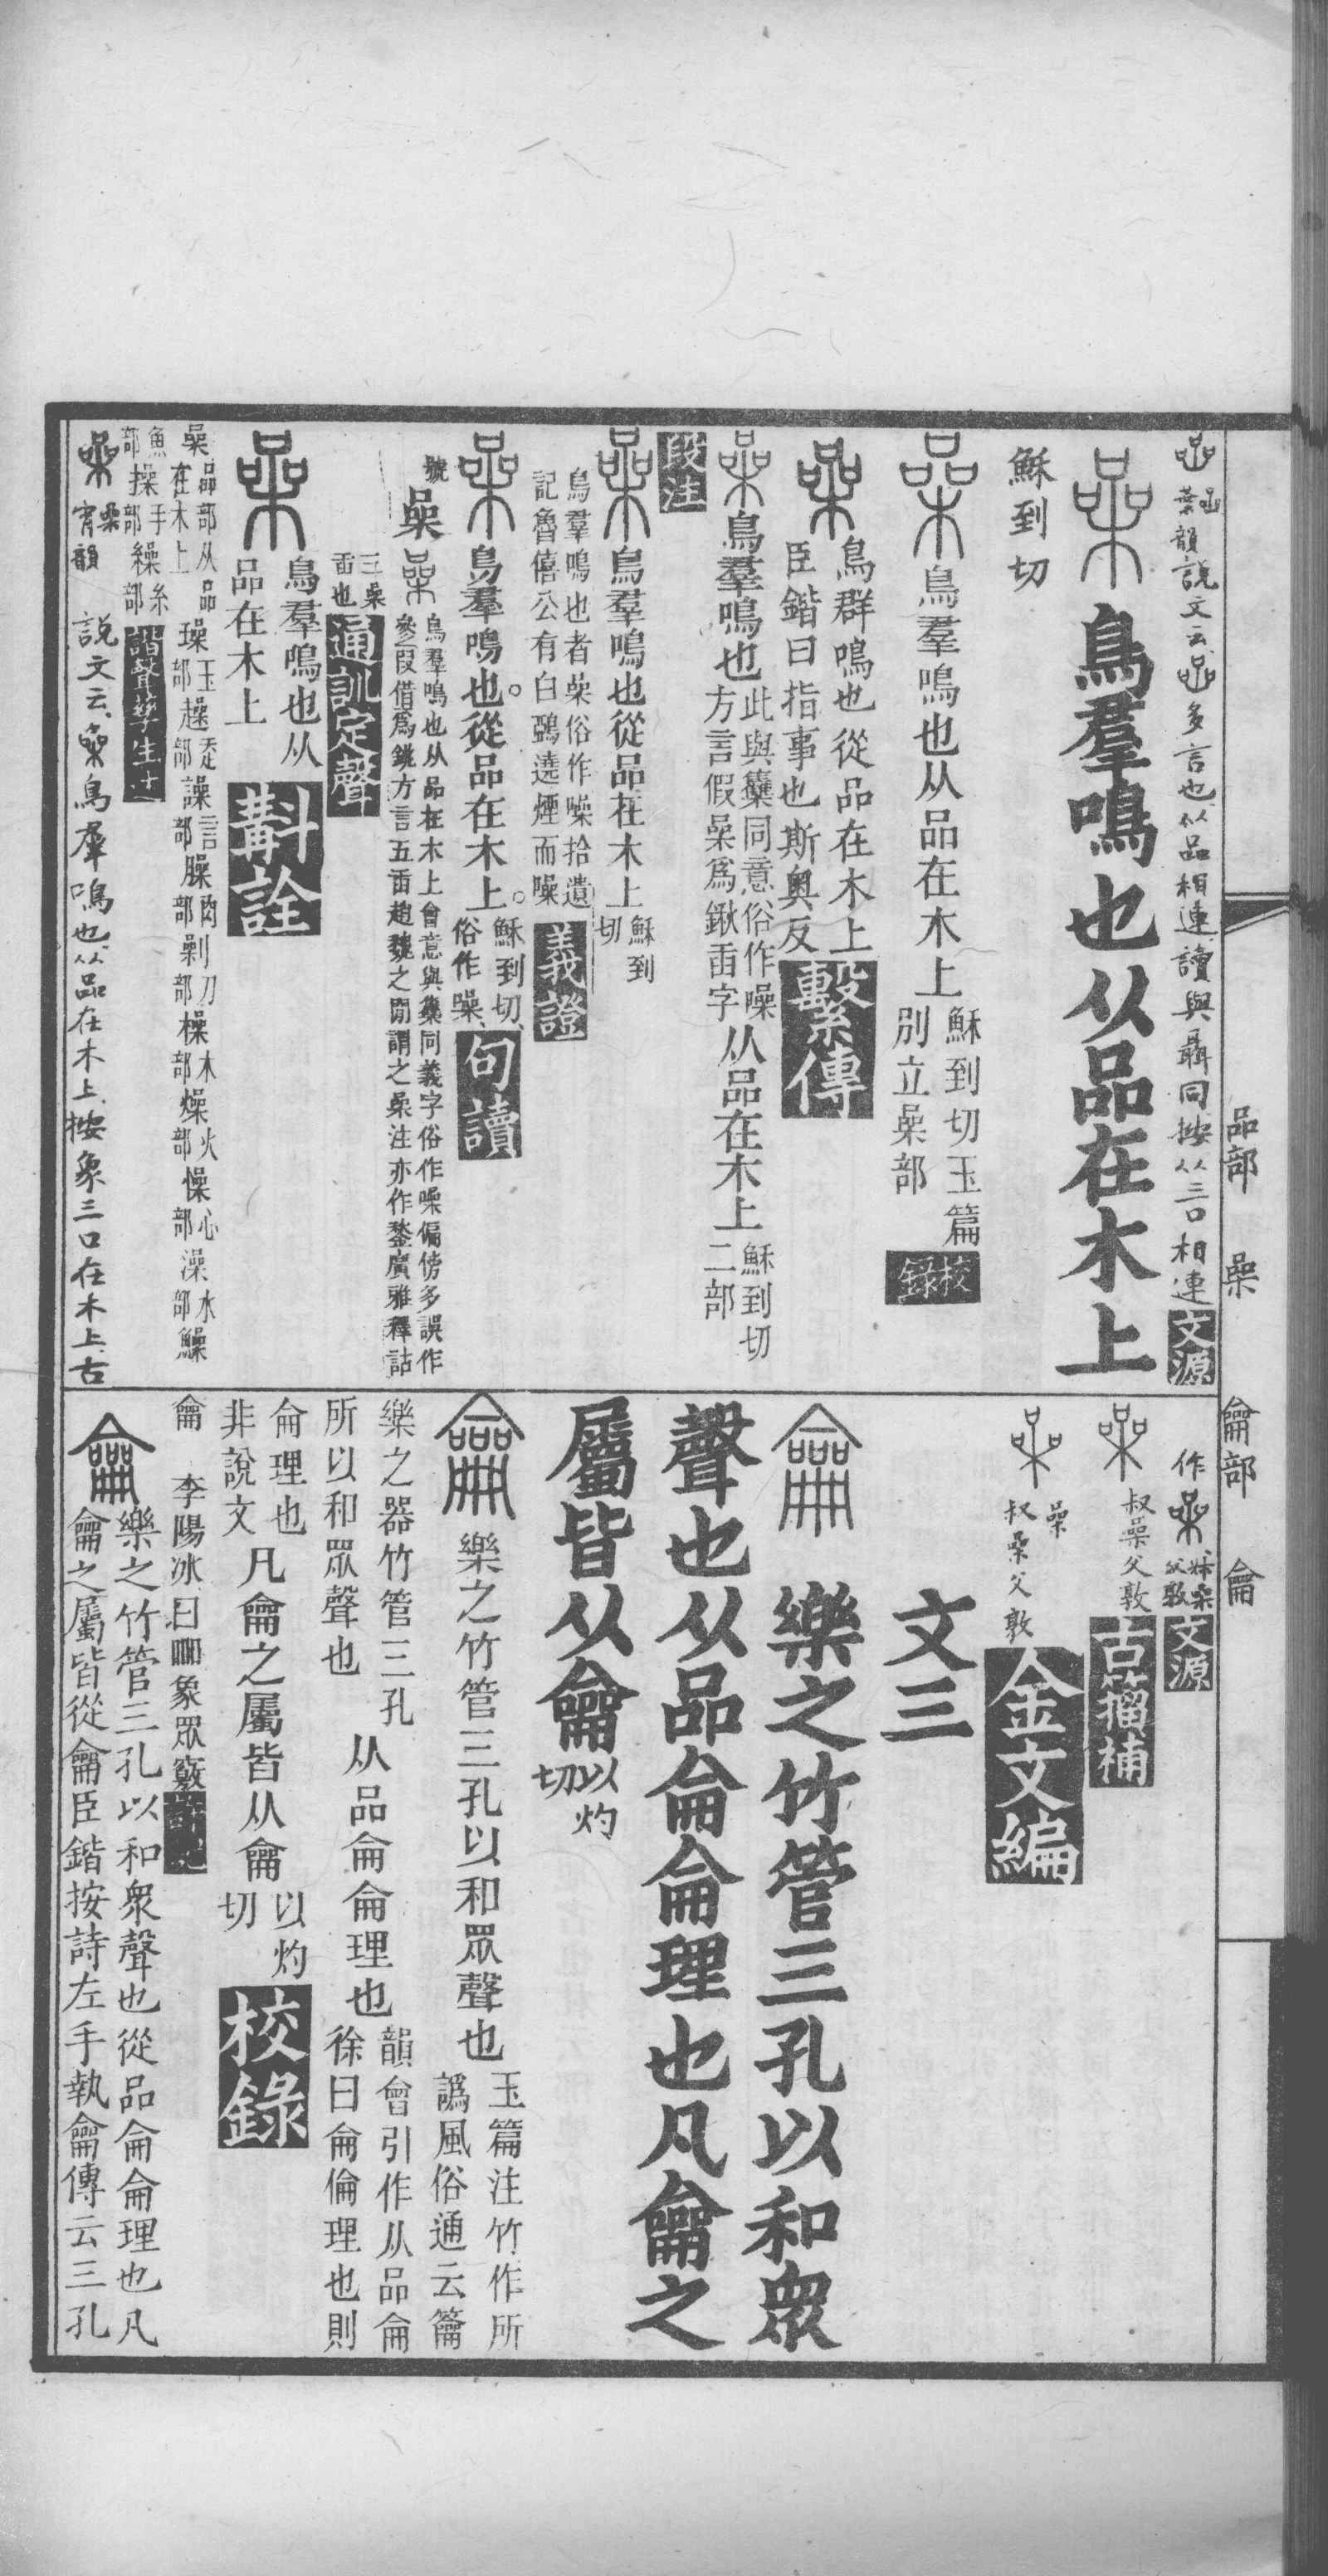 品部 喿 龠部 龠
喦 葉韻 說文云喦多言也从品相連讀與聶同按从三口相連 文源
喿 鳥羣鳴也从品在木上
穌到切
喿 鳥羣鳴也从品在木上 穌到切玉篇別立喿部 校錄
喿 鳥群鳴也從品在木上 臣鍇曰指事也斯奧反 繫傳
喿 鳥羣鳴也 此與雥同意俗作噪方言假喿爲鍬臿字 从品在木上 穌到切二部
段注
喿 鳥羣鳴也從品在木上 穌到切
鳥羣鳴也者喿俗作噪拾遺記魯僖公有白鵶遶煙而噪 義證
喿 鳥羣鳴也。從品在木上。 穌到切俗作噪 句讀
號 喿 鳥羣鳴也从品在木上會意與雧同義字俗作噪偏傍多誤作參叚借爲銚方言五臿趙魏之閒謂之喿注亦作鍫廣雅釋詁
三喿臿也 通訓定聲
喿 鳥羣鳴也从品在木上 斠詮
喿 品部从品在木上 璪 玉部 趮 走部 譟 言部 臊 肉部 劋 刀部 橾 木部 燥 火部 懆 心部 澡 水部 鱢
魚部 操 手部 繰 糸部 諧聲孳生述
喿 喿宵韻 說文云喿鳥羣鳴也从品在木上按象三口在木上古
作喿 父敦 文源
喿 叔喿父敦 古籀補
喿 喿 叔喿父敦 金文編
文三
龠 樂之竹管三孔以和衆
聲也从品侖侖理也凡龠之
屬皆从龠 以灼切
龠 樂之竹管三孔以和眾聲也 玉篇注竹作所譌風俗通云籥
樂之器竹管三孔所以和眾聲也 从品侖侖理也 韻會引作从品侖徐曰侖倫理也則
侖理也非說文 凡龠之屬皆从龠 以灼切 校錄
龠 李陽冰曰 象眾竅
龠 樂之竹管三孔以和衆聲也從品侖侖理也凡龠之屬皆從龠臣鍇按詩左手執龠傳云三孔